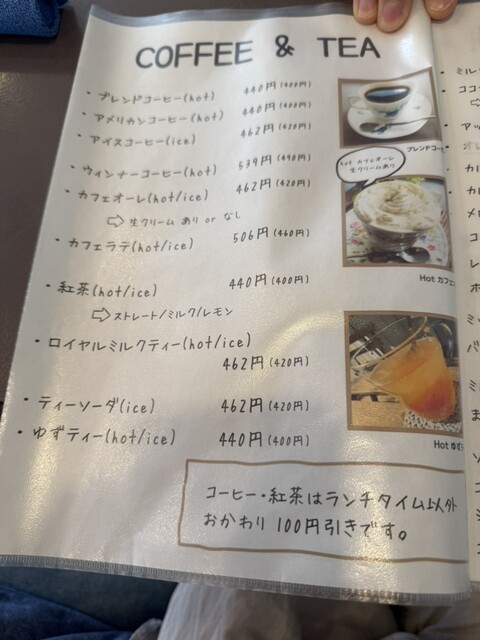 COFFEE & TEA
・ブレンドコーヒー(hot) 440円(400円)
・アメリカンコーヒー(hot) 440円(400円)
・アイスコーヒー(ice) 462円(420円)
・ウィンナーコーヒー(hot) 539円(490円)
・カフェオーレ(hot/ice) 462円(420円)
⇨ 生クリーム あり or なし
・カフェラテ(hot/ice) 506円(460円)
・紅茶(hot/ice) 440円(400円)
⇨ ストレート/ミルク/レモン
・ロイヤルミルクティー(hot/ice)
462円(420円)
・ティーソーダ(ice) 462円(420円)
・ゆずティー(hot/ice) 440円(400円)
コーヒー・紅茶はランチタイム以外
おかわり 100円引きです。
ブレンドコー
hot カフェオーレ
生クリームあり
Hot カフェ
Hot ゆず
・ミル
・ココ
⇨
・アッ
・オレ
・カル
・カル
・メロ
・コ
・レ